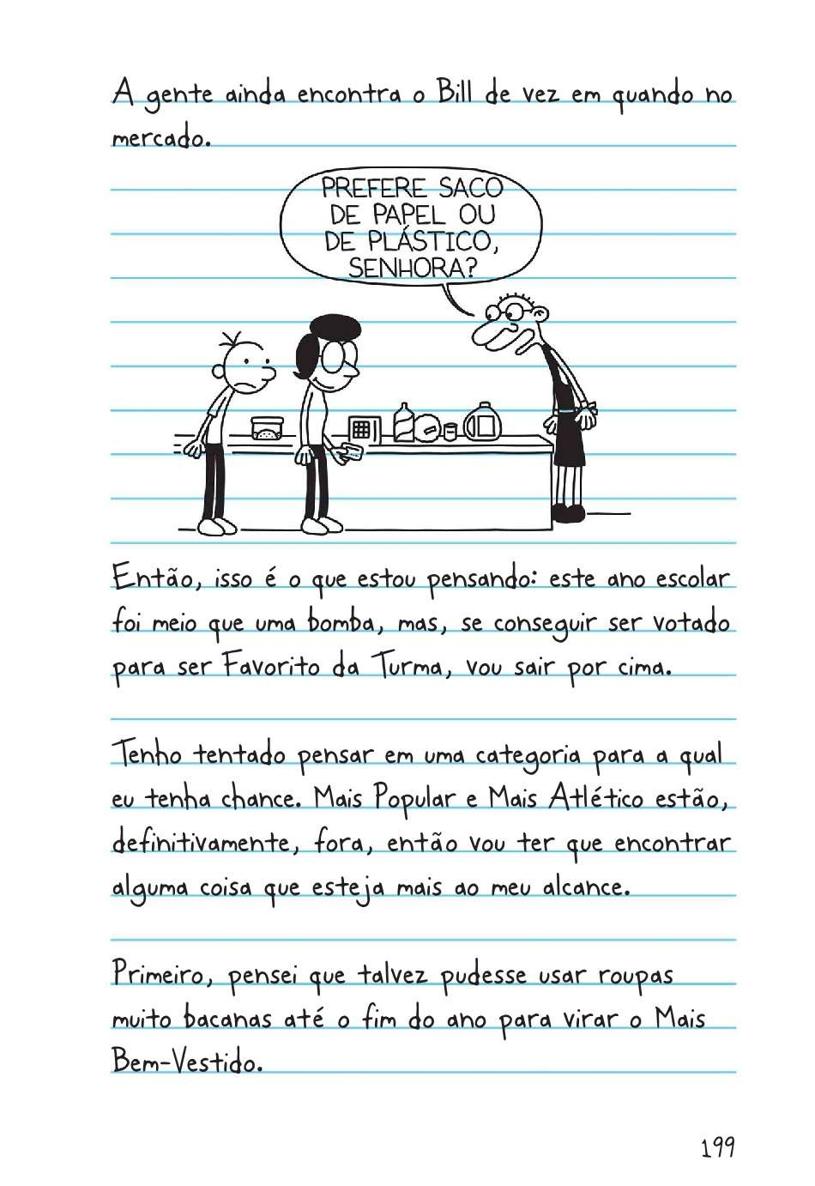 A gente ainda encontra o Bill de vez em quando no
mercado.
PREFERE SACO
DE PAPEL OU
DE PLÁSTICO,
SENHORA?
Então, isso é o que estou pensando: este ano escolar
foi meio que uma bomba, mas, se conseguir ser votado
para ser Favorito da Turma, vou sair por cima.
Tenho tentado pensar em uma categoria para a qual
eu tenha chance. Mais Popular e Mais Atlético estão,
definitivamente, fora, então vou ter que encontrar
alguma coisa que esteja mais ao meu alcance.
Primeiro, pensei que talvez pudesse usar roupas
muito bacanas até o fim do ano para virar o Mais
Bem-Vestido.
199